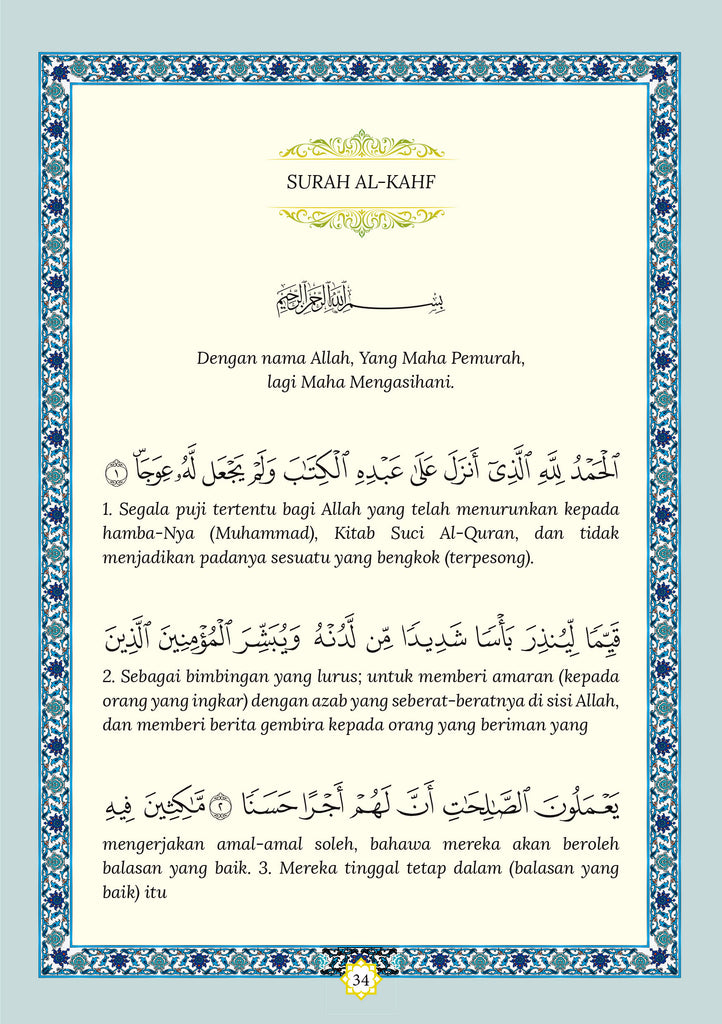 SURAH AL-KAHF
بِسْمِ اللَّهِ الرَّحْمَٰنِ الرَّحِيمِ
Dengan nama Allah, Yang Maha Pemurah,
lagi Maha Mengasihani.
ٱلْحَمْدُ لِلَّهِ ٱلَّذِىٓ أَنزَلَ عَلَىٰ عَبْدِهِ ٱلْكِتَـٰبَ وَلَمْ يَجْعَل لَّهُۥ عِوَجَاۜ ١
1. Segala puji tertentu bagi Allah yang telah menurunkan kepada
hamba-Nya (Muhammad), Kitab Suci Al-Quran, dan tidak
menjadikan padanya sesuatu yang bengkok (terpesong).
قَيِّمًا لِّيُنذِرَ بَأْسًا شَدِيدًا مِّن لَّدُنْهُ وَيُبَشِّرَ ٱلْمُؤْمِنِينَ ٱلَّذِينَ
2. Sebagai bimbingan yang lurus; untuk memberi amaran (kepada
orang yang ingkar) dengan azab yang seberat-beratnya di sisi Allah,
dan memberi berita gembira kepada orang yang beriman yang
يَعْمَلُونَ ٱلصَّـٰلِحَـٰتِ أَنَّ لَهُمْ أَجْرًا حَسَنًا ٢ مَّـٰكِثِينَ فِيهِ
mengerjakan amal-amal soleh, bahawa mereka akan beroleh
balasan yang baik. 3. Mereka tinggal tetap dalam (balasan yang
baik) itu
34